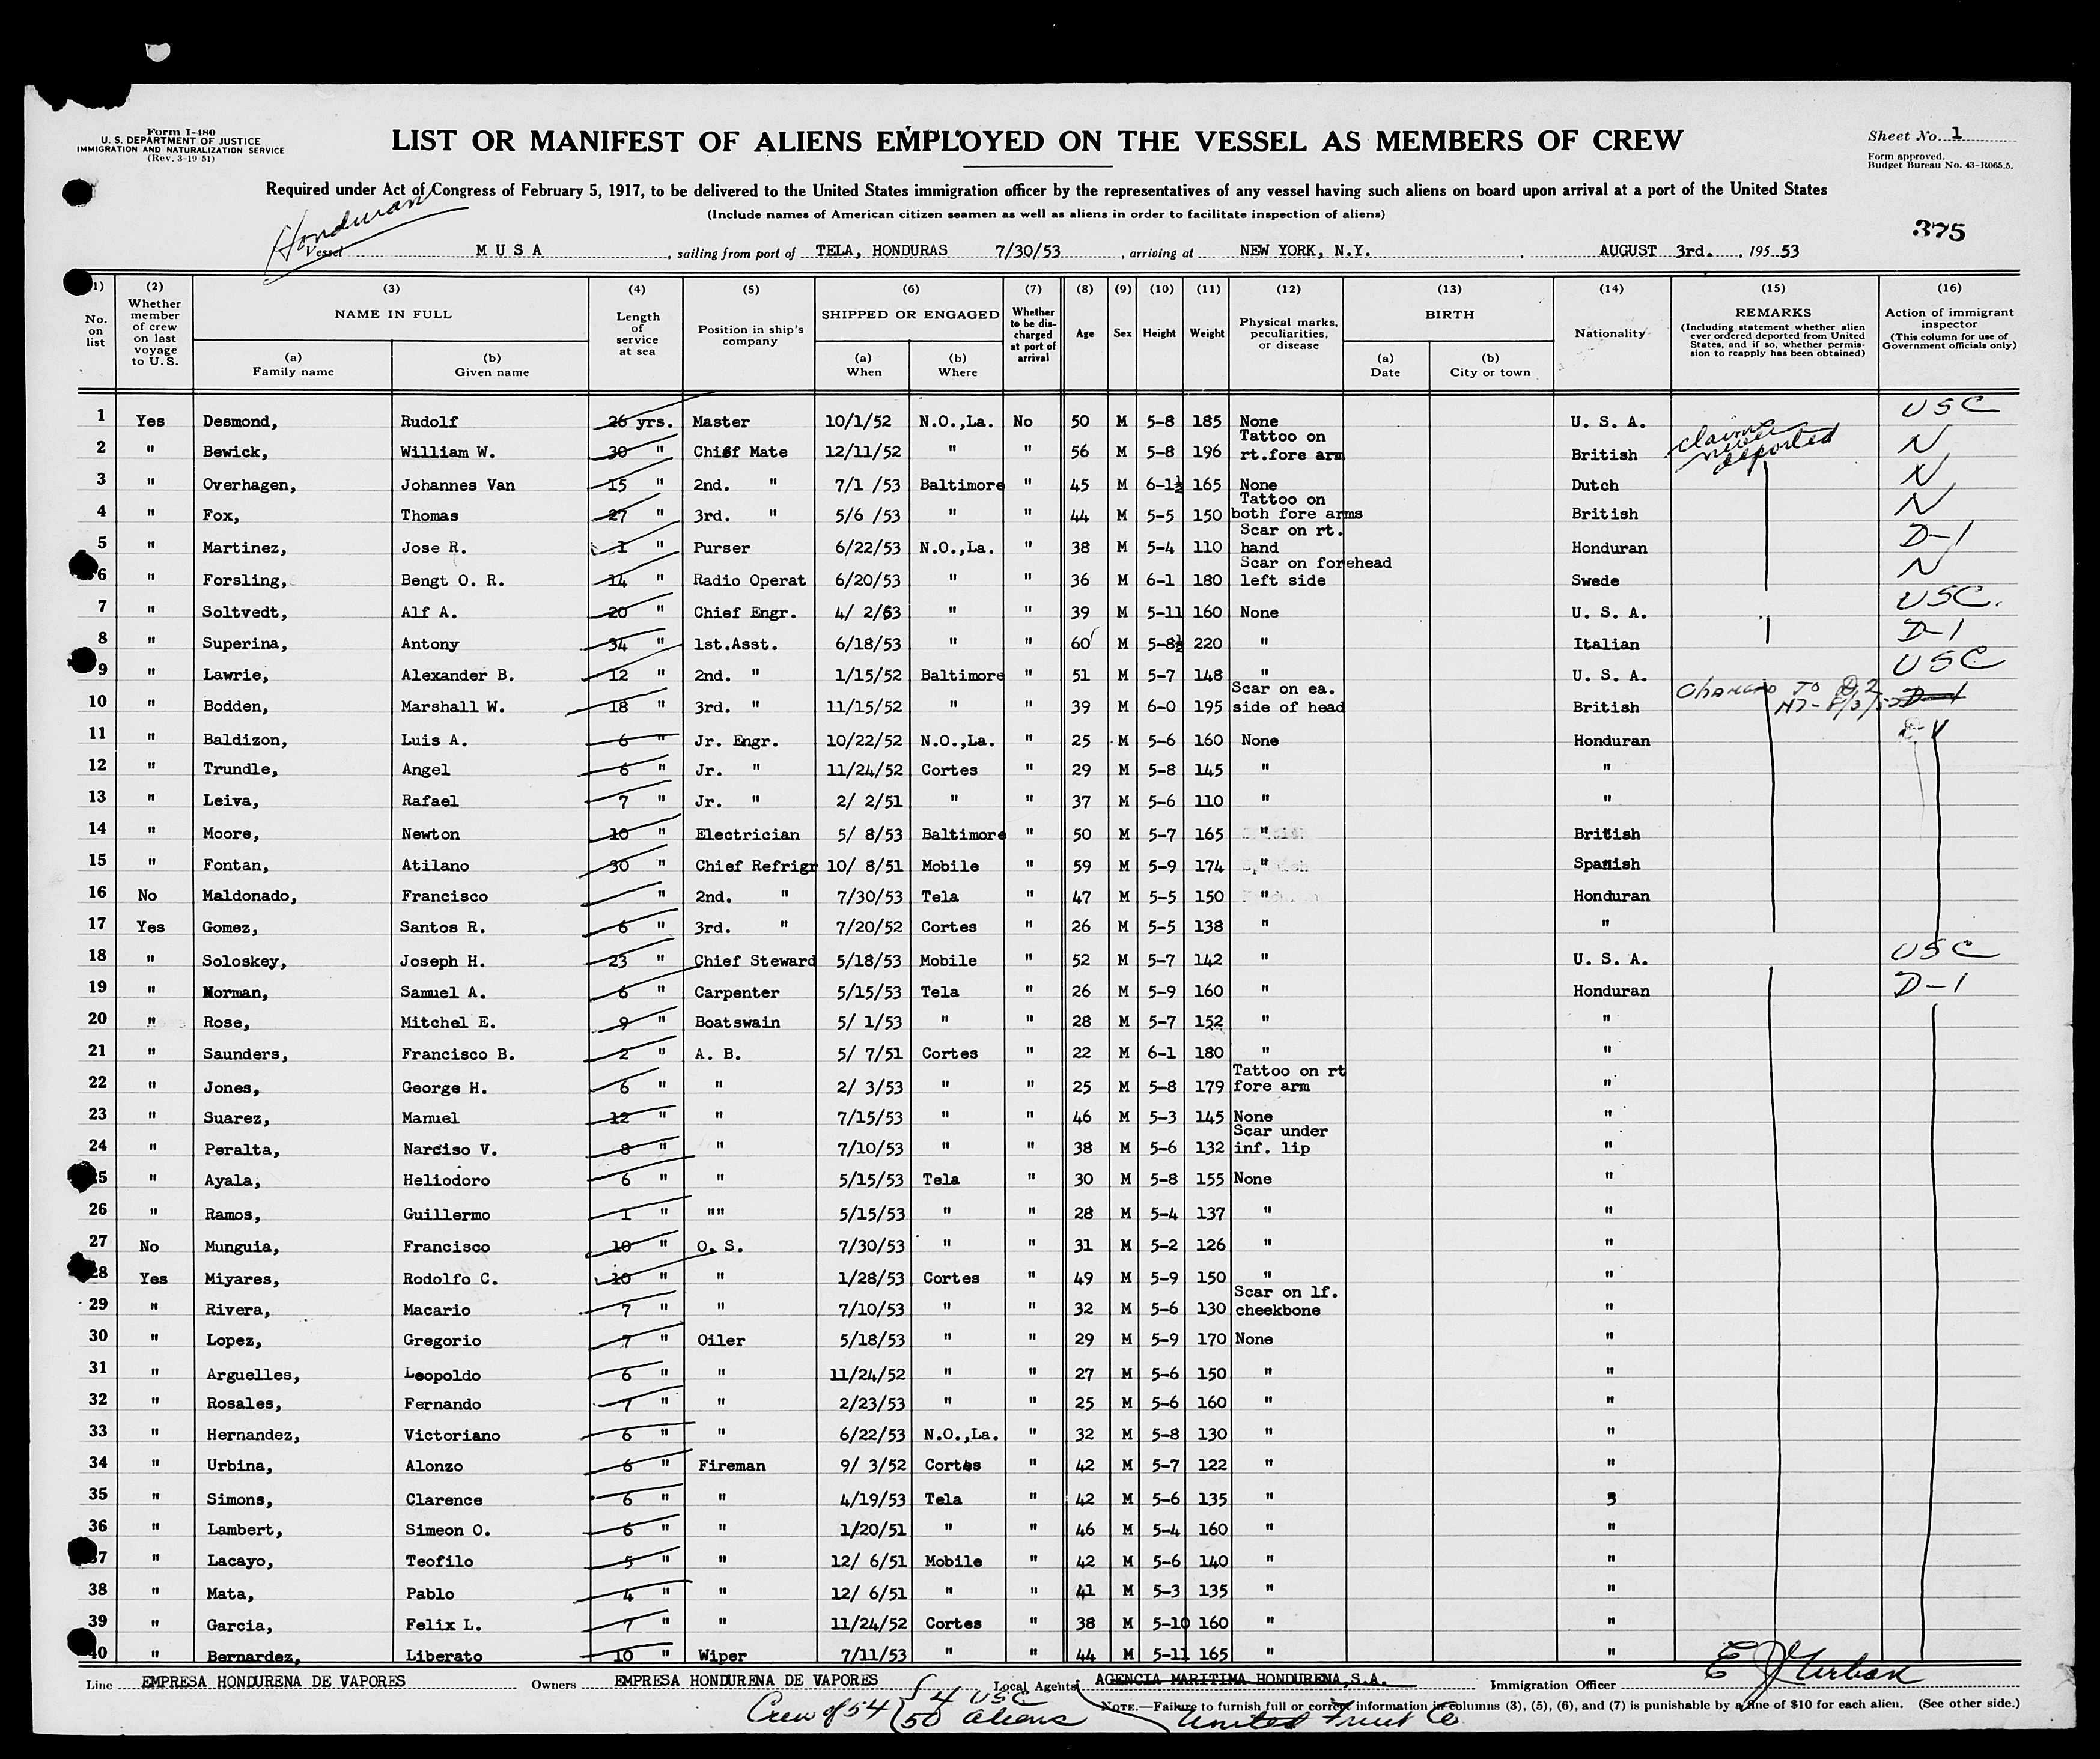 Form I-480
U. S. DEPARTMENT OF JUSTICE
IMMIGRATION AND NATURALIZATION SERVICE
(Rev. 3-19-51)
LIST OR MANIFEST OF ALIENS EMPLOYED ON THE VESSEL AS MEMBERS OF CREW
Sheet No. 1
Form approved.
Budget Bureau No. 43-R065.5.
Required under Act of Congress of February 5, 1917, to be delivered to the United States immigration officer by the representatives of any vessel having such aliens on board upon arrival at a port of the United States
(Include names of American citizen seamen as well as aliens in order to facilitate inspection of aliens)
375
Honduran
Vessel M U S A , sailing from port of TELA, HONDURAS 7/30/53 , arriving at NEW YORK, N.Y. , AUGUST 3rd. , 195 53
(1) No. on list (2) Whether member of crew on last voyage to U. S. (3) NAME IN FULL (a) Family name (b) Given name (4) Length of service at sea (5) Position in ship's company (6) SHIPPED OR ENGAGED (a) When (b) Where (7) Whether to be discharged at port of arrival (8) Age (9) Sex (10) Height (11) Weight (12) Physical marks, peculiarities, or disease (13) BIRTH (a) Date (b) City or town (14) Nationality (15) REMARKS (Including statement whether alien ever ordered deported from United States, and if so, whether permission to reapply has been obtained) (16) Action of immigrant inspector (This column for use of Government officials only)
1 Yes Desmond, Rudolf 26 yrs. Master 10/1/52 N.O.,La. No 50 M 5-8 185 None U. S. A. USC
2 " Bewick, William W. 30 " Chief Mate 12/11/52 " " 56 M 5-8 196 Tattoo on rt.fore arm British claims never deported N
3 " Overhagen, Johannes Van 15 " 2nd. " 7/1 /53 Baltimore " 45 M 6-1½ 165 None Dutch N
4 " Fox, Thomas 27 " 3rd. " 5/6 /53 " " 44 M 5-5 150 Tattoo on both fore arms British N
5 " Martinez, Jose R. 1 " Purser 6/22/53 N.O.,La. " 38 M 5-4 110 Scar on rt. hand Honduran D-1
6 " Forsling, Bengt O. R. 14 " Radio Operat 6/20/53 " " 36 M 6-1 180 Scar on forehead left side Swede N
7 " Soltvedt, Alf A. 20 " Chief Engr. 4/ 2/53 " " 39 M 5-11 160 None U. S. A. USC.
8 " Superina, Antony 34 " 1st.Asst. 6/18/53 " " 60 M 5-8½ 220 " Italian D-1
9 " Lawrie, Alexander B. 12 " 2nd. " 1/15/52 Baltimore " 51 M 5-7 148 " U. S. A. USC
10 " Bodden, Marshall W. 18 " 3rd. " 11/15/52 " " 39 M 6-0 195 Scar on ea. side of head British Changed to D2 D-1
11 " Baldizon, Luis A. 6 " Jr. Engr. 10/22/52 N.O.,La. " 25 M 5-6 160 None Honduran
12 " Trundle, Angel 6 " Jr. " 11/24/52 Cortes " 29 M 5-8 145 " "
13 " Leiva, Rafael 7 " Jr. " 2/ 2/51 " " 37 M 5-6 110 " "
14 " Moore, Newton 10 " Electrician 5/ 8/53 Baltimore " 50 M 5-7 165 " British
15 " Fontan, Atilano 30 " Chief Refrigr 10/ 8/51 Mobile " 59 M 5-9 174 " Spanish
16 No Maldonado, Francisco " 2nd. " 7/30/53 Tela " 47 M 5-5 150 " Honduran
17 Yes Gomez, Santos R. 6 " 3rd. " 7/20/52 Cortes " 26 M 5-5 138 " "
18 " Soloskey, Joseph H. 23 " Chief Steward 5/18/53 Mobile " 52 M 5-7 142 " U. S. A. USC
19 " Norman, Samuel A. 6 " Carpenter 5/15/53 Tela " 26 M 5-9 160 " Honduran D-1
20 " Rose, Mitchel E. 9 " Boatswain 5/ 1/53 " " 28 M 5-7 152 " "
21 " Saunders, Francisco B. 2 " A. B. 5/ 7/51 Cortes " 22 M 6-1 180 " "
22 " Jones, George H. 6 " " 2/ 3/53 " " 25 M 5-8 179 Tattoo on rt fore arm "
23 " Suarez, Manuel 12 " " 7/15/53 " " 46 M 5-3 145 None "
24 " Peralta, Narciso V. 8 " " 7/10/53 " " 38 M 5-6 132 Scar under inf. lip "
25 " Ayala, Heliodoro 6 " " 5/15/53 Tela " 30 M 5-8 155 None "
26 " Ramos, Guillermo 1 " "" 5/15/53 " " 28 M 5-4 137 " "
27 No Munguia, Francisco 10 " O. S. 7/30/53 " " 31 M 5-2 126 " "
28 Yes Miyares, Rodolfo C. 10 " " 1/28/53 Cortes " 49 M 5-9 150 " "
29 " Rivera, Macario 7 " " 7/10/53 " " 32 M 5-6 130 Scar on lf. cheekbone "
30 " Lopez, Gregorio 7 " Oiler 5/18/53 " " 29 M 5-9 170 None "
31 " Arguelles, Leopoldo 6 " " 11/24/52 " " 27 M 5-6 150 " "
32 " Rosales, Fernando 7 " " 2/23/53 " " 25 M 5-6 160 " "
33 " Hernandez, Victoriano 6 " " 6/22/53 N.O.,La. " 32 M 5-8 130 " "
34 " Urbina, Alonzo 6 " Fireman 9/ 3/52 Cortes " 42 M 5-7 122 " "
35 " Simons, Clarence 6 " " 4/19/53 Tela " 42 M 5-6 135 "
36 " Lambert, Simeon O. 6 " " 1/20/51 " " 46 M 5-4 160 " "
37 " Lacayo, Teofilo 5 " " 12/ 6/51 Mobile " 42 M 5-6 140 " "
38 " Mata, Pablo 4 " " 12/ 6/51 " " 41 M 5-3 135 " "
39 " Garcia, Felix L. 7 " " 11/24/52 Cortes " 38 M 5-10 160 " "
40 " Bernardez, Liberato 10 " Wiper 7/11/53 " " 44 M 5-11 165 " "
Line EMPRESA HONDURENA DE VAPORES Owners EMPRESA HONDURENA DE VAPORES Local Agents AGENCIA MARITIMA HONDURENA,S.A. Immigration Officer
NOTE.—Failure to furnish full or correct information in columns (3), (5), (6), and (7) is punishable by a fine of $10 for each alien. (See other side.)
Crew of 54 { 4 USC
50 Aliens
United Fruit Co